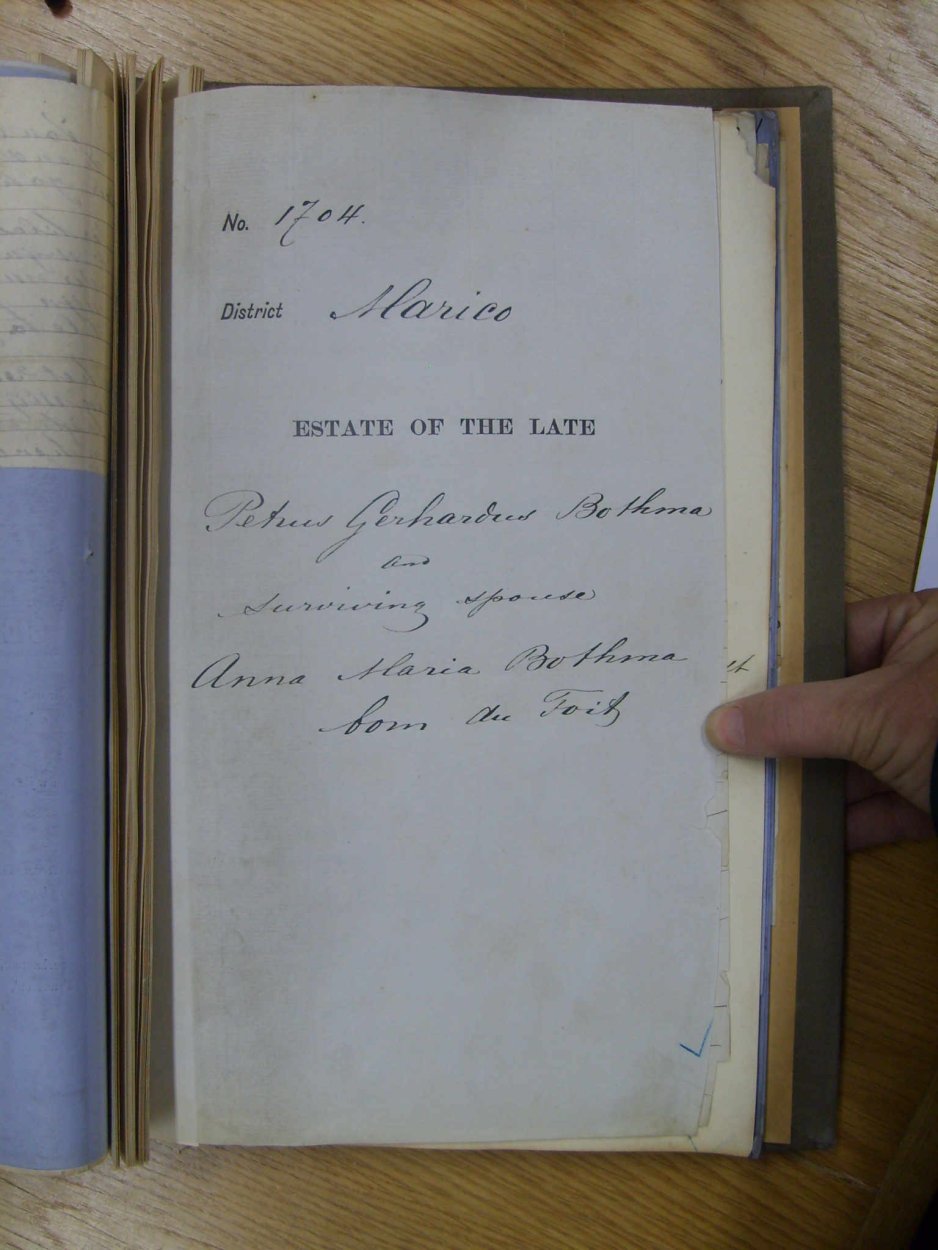 No. 1704.
District Marico
ESTATE OF THE LATE
Petrus Gerhardus Bothma
and
surviving spouse
Anna Maria Bothma
born du Toit